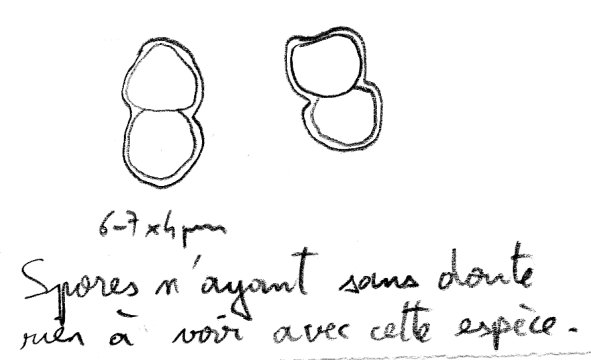 6-7 x 4 µm
Spores n'ayant sans doute
rien à voir avec cette espèce.